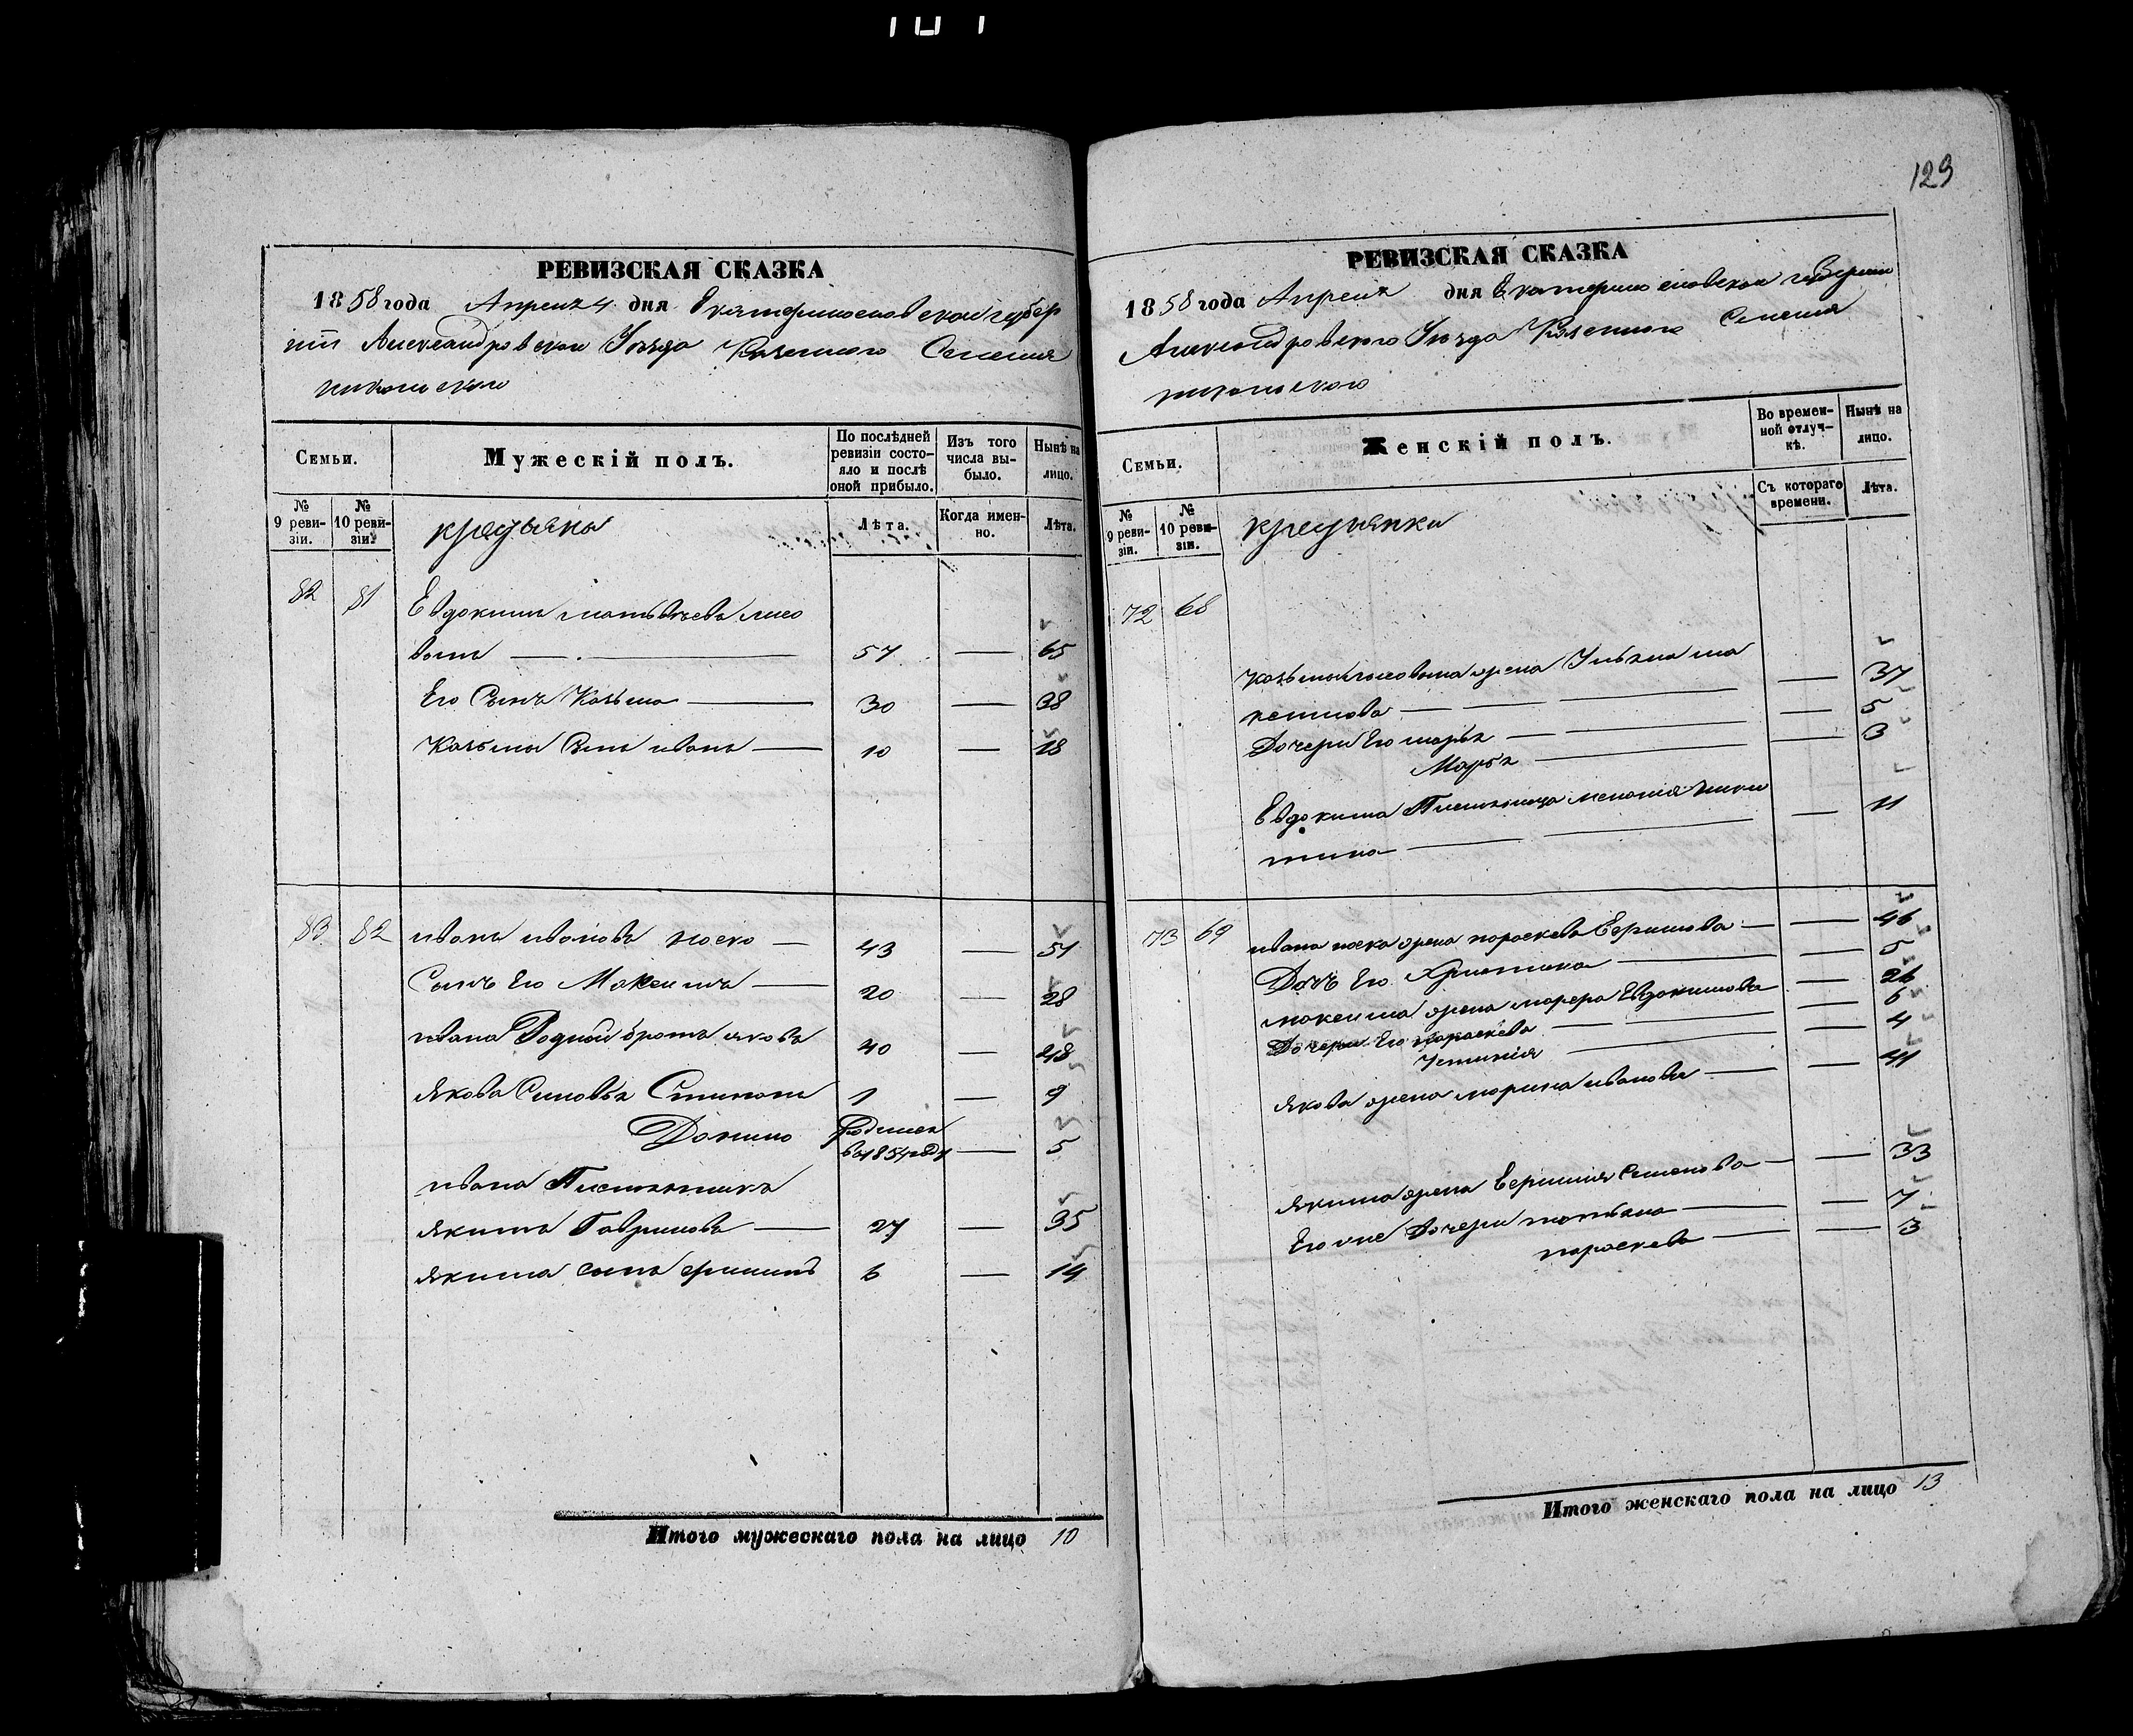 129
РЕВИЗСКАЯ СКАЗКА
1858 года Апреля 4 дня Екатеринославской губер
нии Александровскаго Уезда Казенного Селения
никольского
Семьи.
Мужескій полъ.
По послѣдней ревизіи состояло и послѣ оной прибыло.
Изъ того числа выбыло.
Нынѣ на лицо.
№ 9 ревизіи.
№ 10 ревизіи.
Лѣта.
Когда именно.
Лѣта.
82 81 Евдокимъ матвѣевъ
— 57 — 65
Его Сынъ Козьма — 30 — 38
Козьмы Сынъ иванъ — 10 — 18
83 82 иванъ ивановъ носко — 43 — 51
Сынъ Его Максимъ — 20 — 28
ивана Родной братъ яковъ 40 — 48
якова Сыновья 1 — 9
родился
Данило въ 1854 году — 5
ивана Племянникъ
якимъ Гавриловъ — 27 — 35
якима сынъ 6 — 14
Итого мужескаго пола на лицо 10
РЕВИЗСКАЯ СКАЗКА
1858 года Апреля дня Екатеринославской губернии
Александровского Уезда Казенного Селения
никольского
Семьи.
Женскій полъ.
Во временной отлучкѣ.
Нынѣ на лицо.
№ 9 ревизіи.
№ 10 ревизіи.
Съ котораго времени.
Лѣта.
72 68
Козьмы жена Ульяна ма
ксимова — — 37
Дочери Его марья — — 5
Марья — — 3
Евдокима Племянница
— — 11
73 69 ивана носка жена параскева Ефимова — — 46
Дочь Его Христина — — 5
максима жена Евдокимова — 26
Дочери Его параскева — — 6
Устинія — — 4
якова жена марина иванова — — 41
якима жена Ефимия Семенова — — 33
Его же Дочери татьяна — — 7
параскева — — 3
Итого женскаго пола на лицо 13